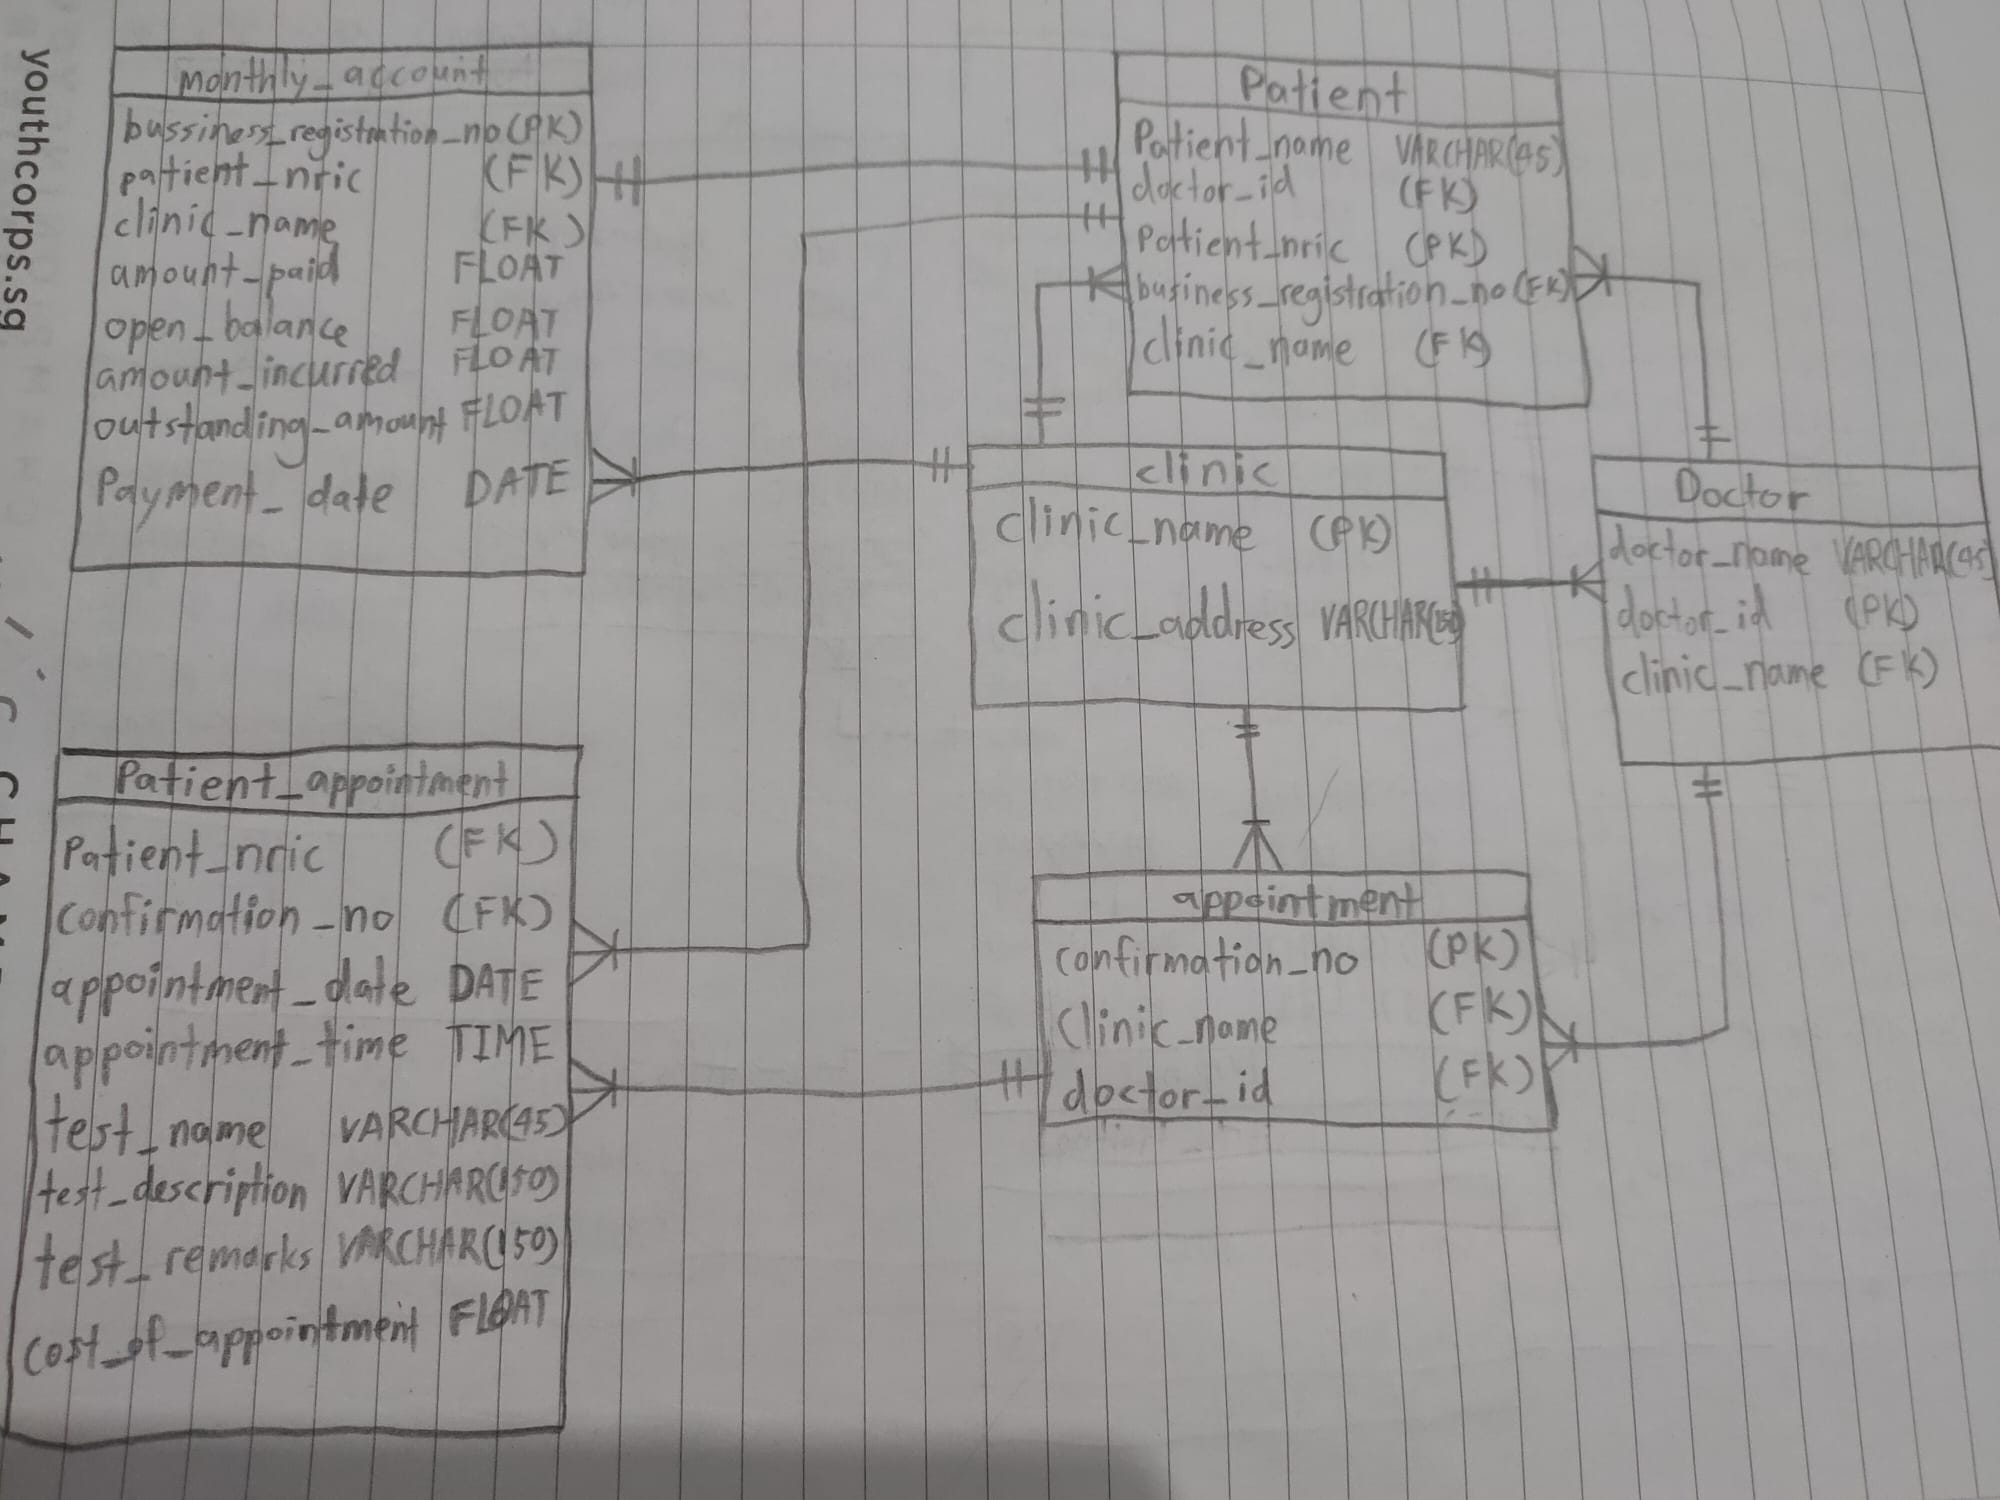 youthcorps.sg
monthly_account
bussiness_registration_no (PK)
patient_nric (FK)
clinic_name (FK)
amount_paid FLOAT
open_balance FLOAT
amount_incurred FLOAT
outstanding_amount FLOAT
Payment_date DATE
Patient
Patient_name VARCHAR(45)
doctor_id (FK)
Patient_nric (PK)
business_registration_no (FK)
clinic_name (FK)
clinic
clinic_name (PK)
clinic_address
Doctor
doctor_name VARCHAR(45)
doctor_id (PK)
clinic_name (FK)
Patient_appointment
Patient_nric (FK)
confirmation_no (FK)
appointment_date DATE
appointment_time TIME
test_name VARCHAR(45)
test_description VARCHAR(150)
test_remarks VARCHAR(150)
cost_of_appointment FLOAT
appointment
confirmation_no (PK)
Clinic_name (FK)
doctor_id (FK)